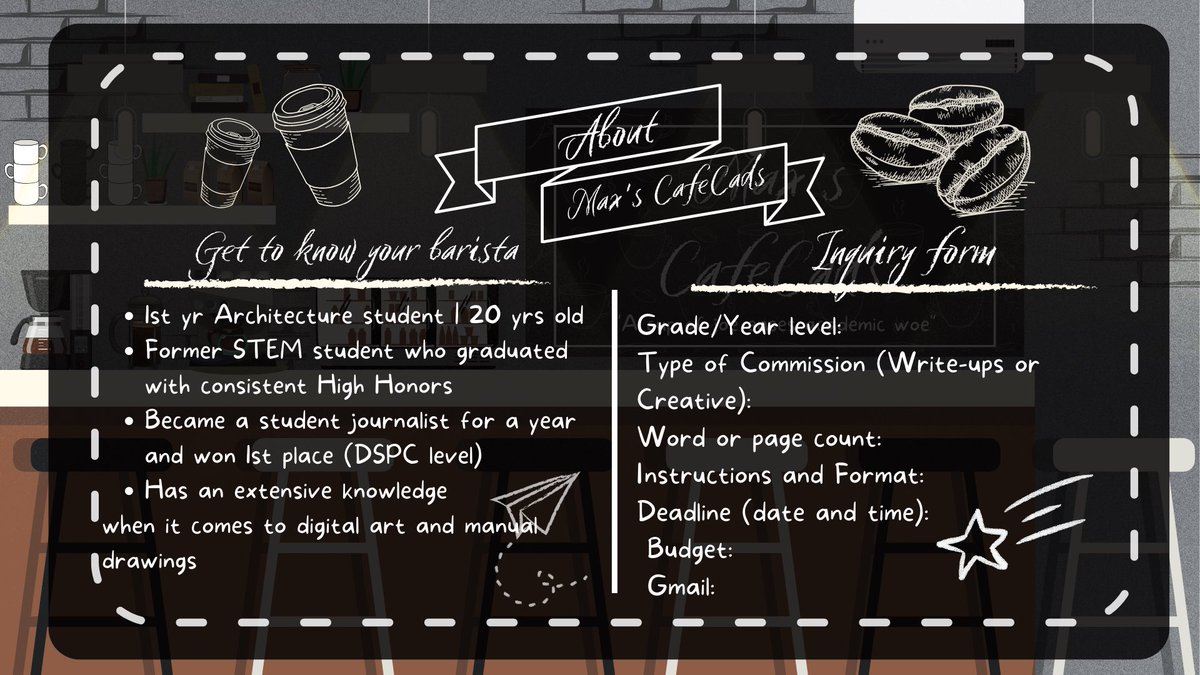 About
Max's CafeCads
Get to know your barista
• 1st yr Architecture student | 20 yrs old
• Former STEM student who graduated
with consistent High Honors
• Became a student journalist for a year
and won 1st place (DSPC level)
• Has an extensive knowledge
when it comes to digital art and manual
drawings
Inquiry form
Grade/Year level:
Type of Commission (Write-ups or
Creative):
Word or page count:
Instructions and Format:
Deadline (date and time):
Budget:
Gmail:
Max's
CafeCads